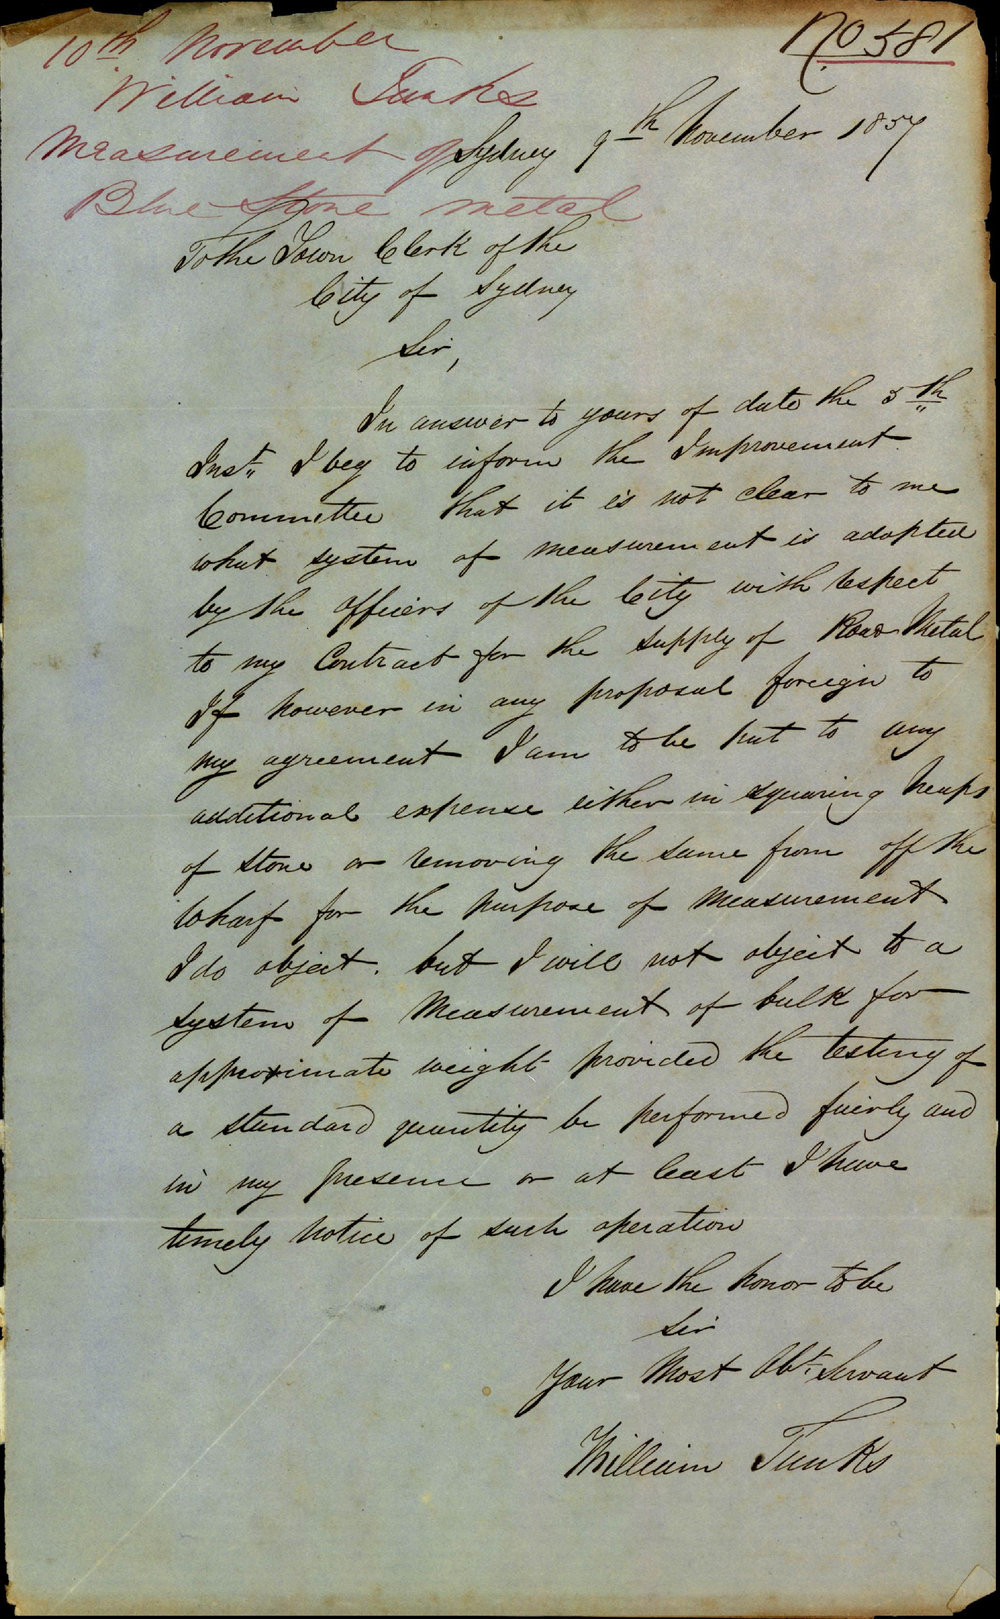 No 581
10th November
William Tunks
Measurement of
Blue Stone metal
Sydney 9th November 1857
To the Town Clerk of the
City of Sydney
Sir,
In answer to yours of date the 5th
Inst. I beg to inform the Improvement
Committee that it is not clear to me
what system of measurement is adopted
by the officers of the City with respect
to my Contract for the supply of Road Metal
If however in any proposal foreign to
my agreement I am to be put to any
additional expense either in squaring heaps
of stone or removing the same from off the
Wharf for the purpose of measurement
I do object. but I will not object to a
system of Measurement of bulk for
approximate weight provided the testing of
a standard quantity be performed fairly and
in my presence or at least I have
timely notice of such operation
I have the honor to be
Sir
Your Most Obt. Servant
William Tunks